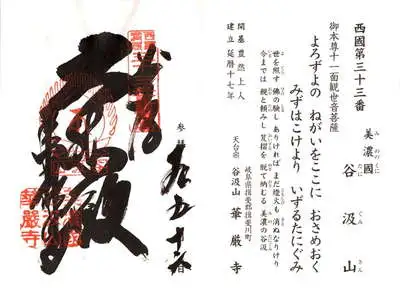 西國第三十三番
美濃國
谷汲山
御本尊十一面観世音菩薩
よろずよの ねがいをここに おさめおく
みずはけより いずるたにぐみ
世を照す 佛の験し ありければ まだ燈火も 消ぬなりけり
今までは 親と頼みし 笈摺を 脱て納むる 美濃の谷汲
岐阜県揖斐郡揖斐川町
天台宗 谷汲山 華厳寺
開基豊然上人
建立延暦十七年
大悲殿
華厳寺